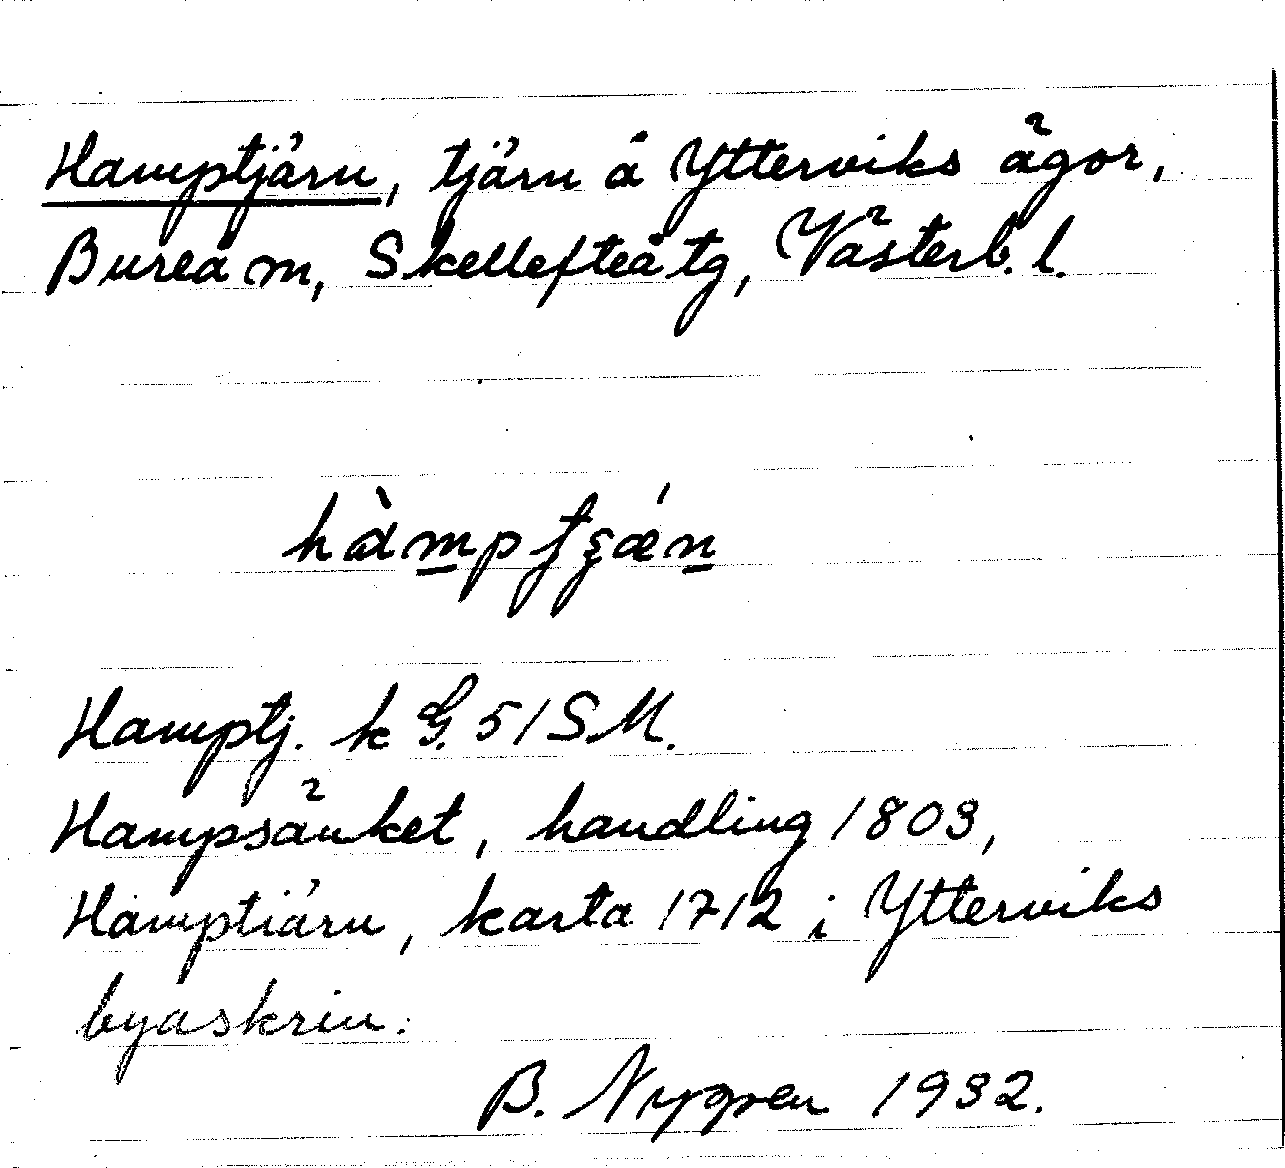 Hamptjärn, tjärn å Ytterviks ägor,
Bureå m, Skellefteå tg, Västerb. l.
hàmptʂǽn
Hamptj. k G. 51 S M.
Hampsänket, handling 1803,
Hamptiärn, karta 1712 i Ytterviks
byaskrin.
B. Nygren 1932.